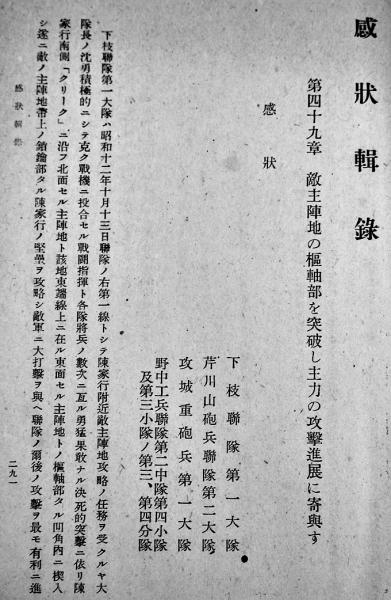 感狀輯錄
第四十九章　敵主陣地の樞軸部を突破し主力の攻擊進展に寄與す
感狀
下枝聯隊第一大隊
芹川山砲兵聯隊第二大隊
攻城重砲兵第一大隊
野中工兵聯隊第二中隊第四小隊
及第三小隊ノ第三、第四分隊
下枝聯隊第一大隊ハ昭和十二年十月十三日聯隊ノ右第一線トシテ陳家行附近敵主陣地攻略ノ任務ヲ受クルヤ大
隊長ノ沈勇積極的ニシテ克ク戰機ニ投合セル戰鬪指揮ト各隊將兵ノ數次ニ亙ル勇猛果敢ナル決死的突擊ニ依リ陳
家行南側「クリーク」ニ沿フ北面セル主陣地ト該地東端線上ニ在ル東面セル主陣地トノ樞軸部タル凹角內ニ楔入
シ遂ニ敵ノ主陣地帶上ノ鎖鑰部タル陳家行ノ堅壘ヲ攻略シ敵軍ニ大打擊ヲ與ヘ聯隊ノ爾後ノ攻擊ヲ最モ有利ニ進
感狀輯錄
二九一